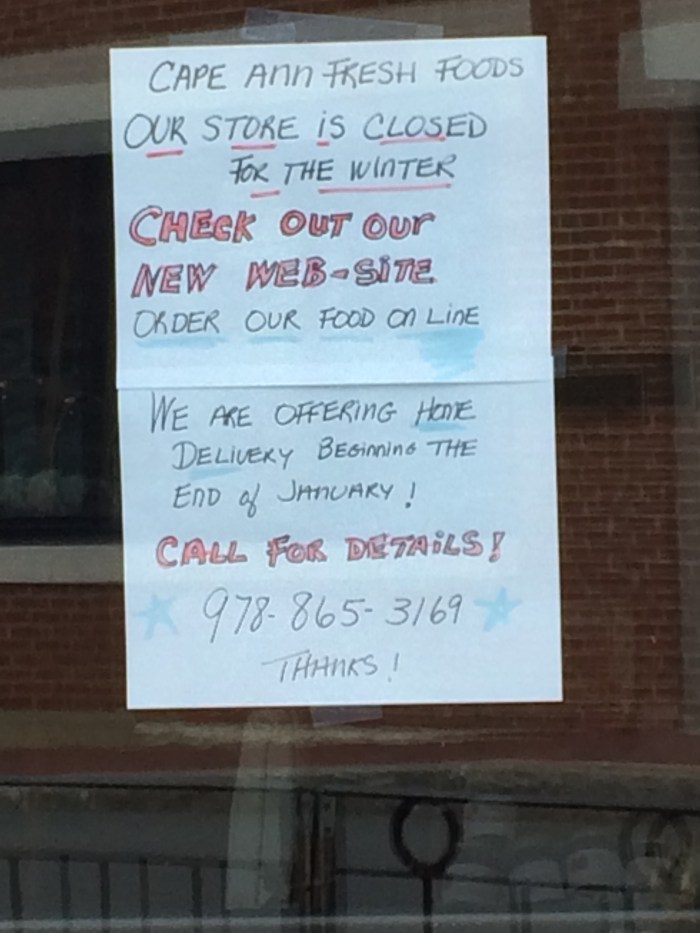 CAPE ANN FRESH FOODS
OUR STORE IS CLOSED
FOR THE WINTER
CHECK OUT OUR
NEW WEB-SITE
ORDER OUR FOOD ON LINE
WE ARE OFFERING HOME
DELIVERY BEGINNING THE
END of JANUARY!
CALL FOR DETAILS!
978-865-3169
THANKS!